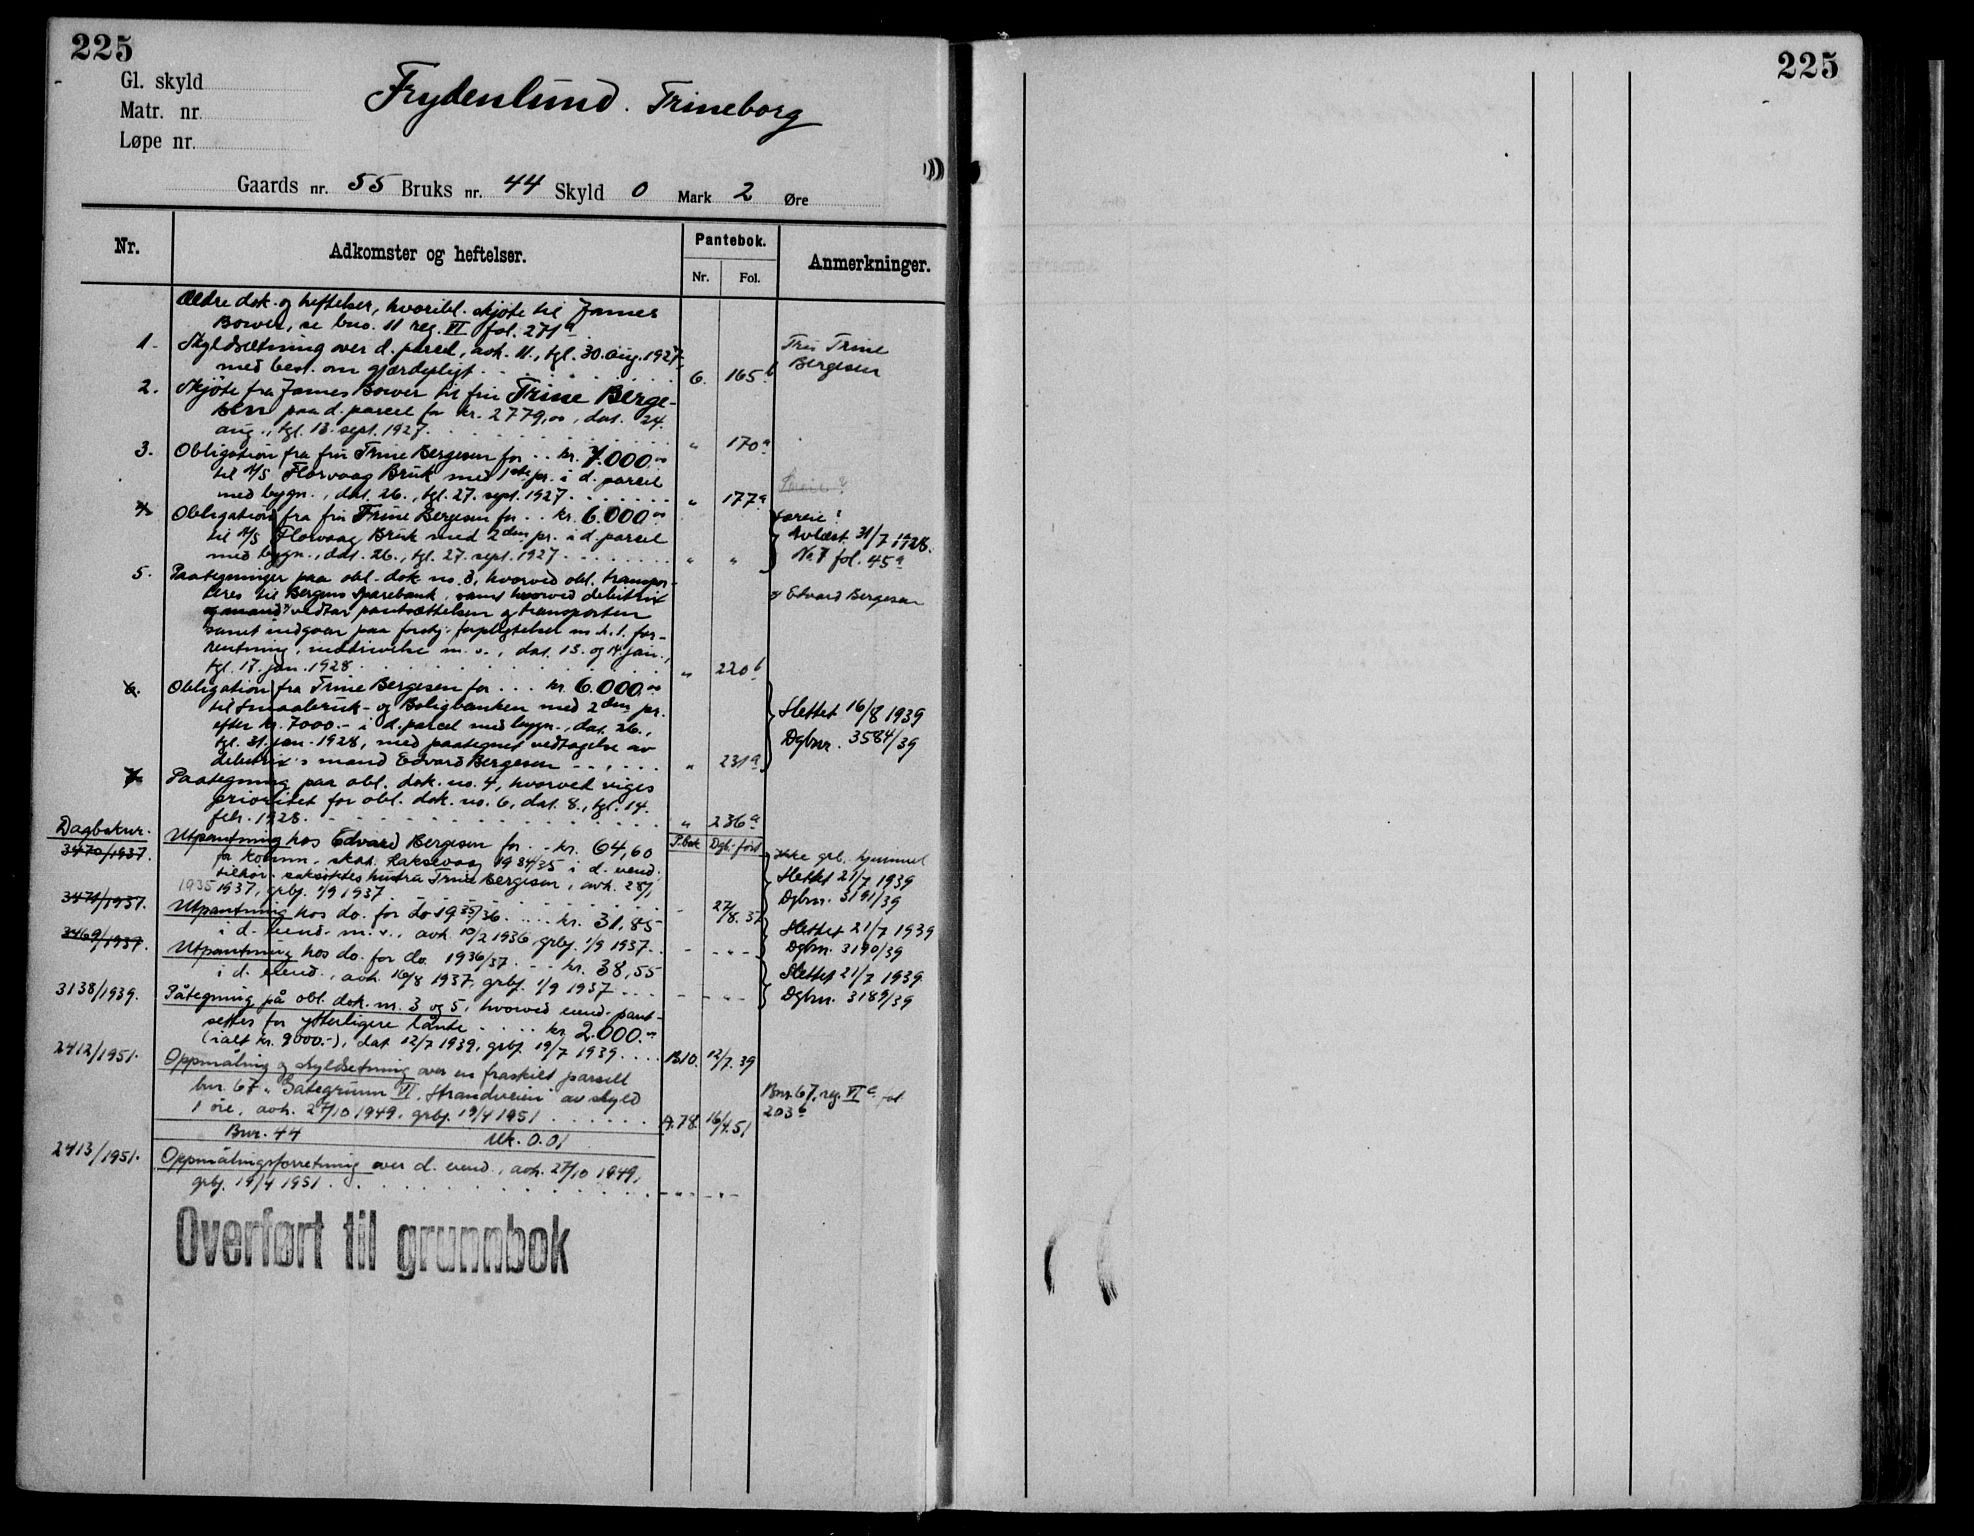 225
225
Gl. skyld
Matr. nr.
Løpe nr.
Frydenlund. Trineborg
Gaards nr. 55 Bruks nr. 44 Skyld 0 Mark 2 Øre
Nr. Adkomster og heftelser. Pantebok. Anmerkninger.
Nr. Fol.
Ældre dok. og heftelser, hvoribl. skjøte til James
Bower, se bno. 11 reg. VI fol. 271a
1. Skyldsætning over d. parcel, avh. 11., tgl. 30. aug. 1927,
med best. om gjærdepligt 6. 165b
Fru Trine
Bergesen
2. Skjøte fra James Bower til fru Trine Berge-
sen paa d. parcel for kr. 2779,00, dat. 24.
aug., tgl. 13. sept. 1927. " 170a
3. Obligation fra fru Trine Bergesen for .. kr. 7.000.00
til A/S Florvaag Bruk med 1ste pr. i d. parcel
med bygn., dat. 26., tgl. 27. sept. 1927. " 177a
4. Obligation fra fru Trine Bergesen for .. kr. 6.000.00
til A/S Florvaag Bruk med 2den pr. i d. parcel
med bygn., dat. 26., tgl. 27. sept. 1927 " "
Avlæst 31/7 1928.
No 7 fol. 45a
5. Paategninger paa obl. dok. no. 3, hvorved obl. transpor-
teres til Bergens Sparebank, samt hvorved debitrix
og mand x/ vedtar pantsættelsen og transporten
samt indgaar paa forskj. forpligtelser m. h. t. for-
rentning, inddrivelse m. v., dat. 13. og 14. jan.,
tgl. 17. jan. 1928 " 220b
x/ Edvard Bergesen
6. Obligation fra Trine Bergesen for ... kr. 6.000.00
til Smaabruk- og Boligbanken med 2den pr.
efter kr. 7000.- i d. parcel med bygn., dat. 26.,
tgl. 31. jan. 1928, med paategnet vedtagelse av
debitrix's mand Edvard Bergesen " 231a
Slettet 16/8 1939
Dgbnr. 3584/39
7. Paategning paa obl. dok. no. 4, hvorved viges
prioritet for obl. dok. no. 6, dat. 8., tgl. 14.
febr. 1928. " 236a
Dagboknr. P.bok Dgb. ført
3470/1937. Utpantning hos Edvard Bergesen for .. kr. 64,60
for komm. skat Laksevaag 1934/35 i d. eiend.
tilhør. saksøktes hustru Trine Bergesen, avh. 28/1
1935 1937, grbf. 1/9 1937 - 27/8. 37
Ikke grb. hjemmel
Slettet 21/7 1939
Dgbnr. 3191/39
3471/1937. Utpantning hos do. for do 1935/36. .... kr. 31,85
i d. eiend. m. v., avh. 10/2 1936, grbf. 1/9 1937.. - - " -
Slettet 21/7 1939
Dgbnr. 3190/39
3469/1937. Utpantning hos do. for do. 1936/37. .. kr. 38,55
i d. eiend., avh. 16/8 1937, grbf. 1/9 1937 .... - - " -
Slettet 21/7 1939.
Dgbnr. 3189/39
3138/1939. Påtegning på obl. dok. nr. 3 og 5, hvorved eiend. pant-
settes for ytterligere lånte ..... kr. 2.000.00
(ialt kr. 9000.-), dat 12/7 1939, grbf. 19/7 1939 .... B10. 12/7. 39
2412/1951. Oppmåling og skyldsetning over en fraskilt parsell
bnr. 67 " Gategrunn VI, Strandveien" av skyld
1 øre, avh. 27/10 1949, grbf. 19/4 1951 A.78. 16/4.51
Bnr. 67, reg. VI c fol
203b
Bnr. 44 Mk. 0.01
2413/1951. Oppmålingsforretning over d. eiend., avh. 27/10 1949,
grbf. 19/4 1951. - " - - " -
Overført til grunnbok